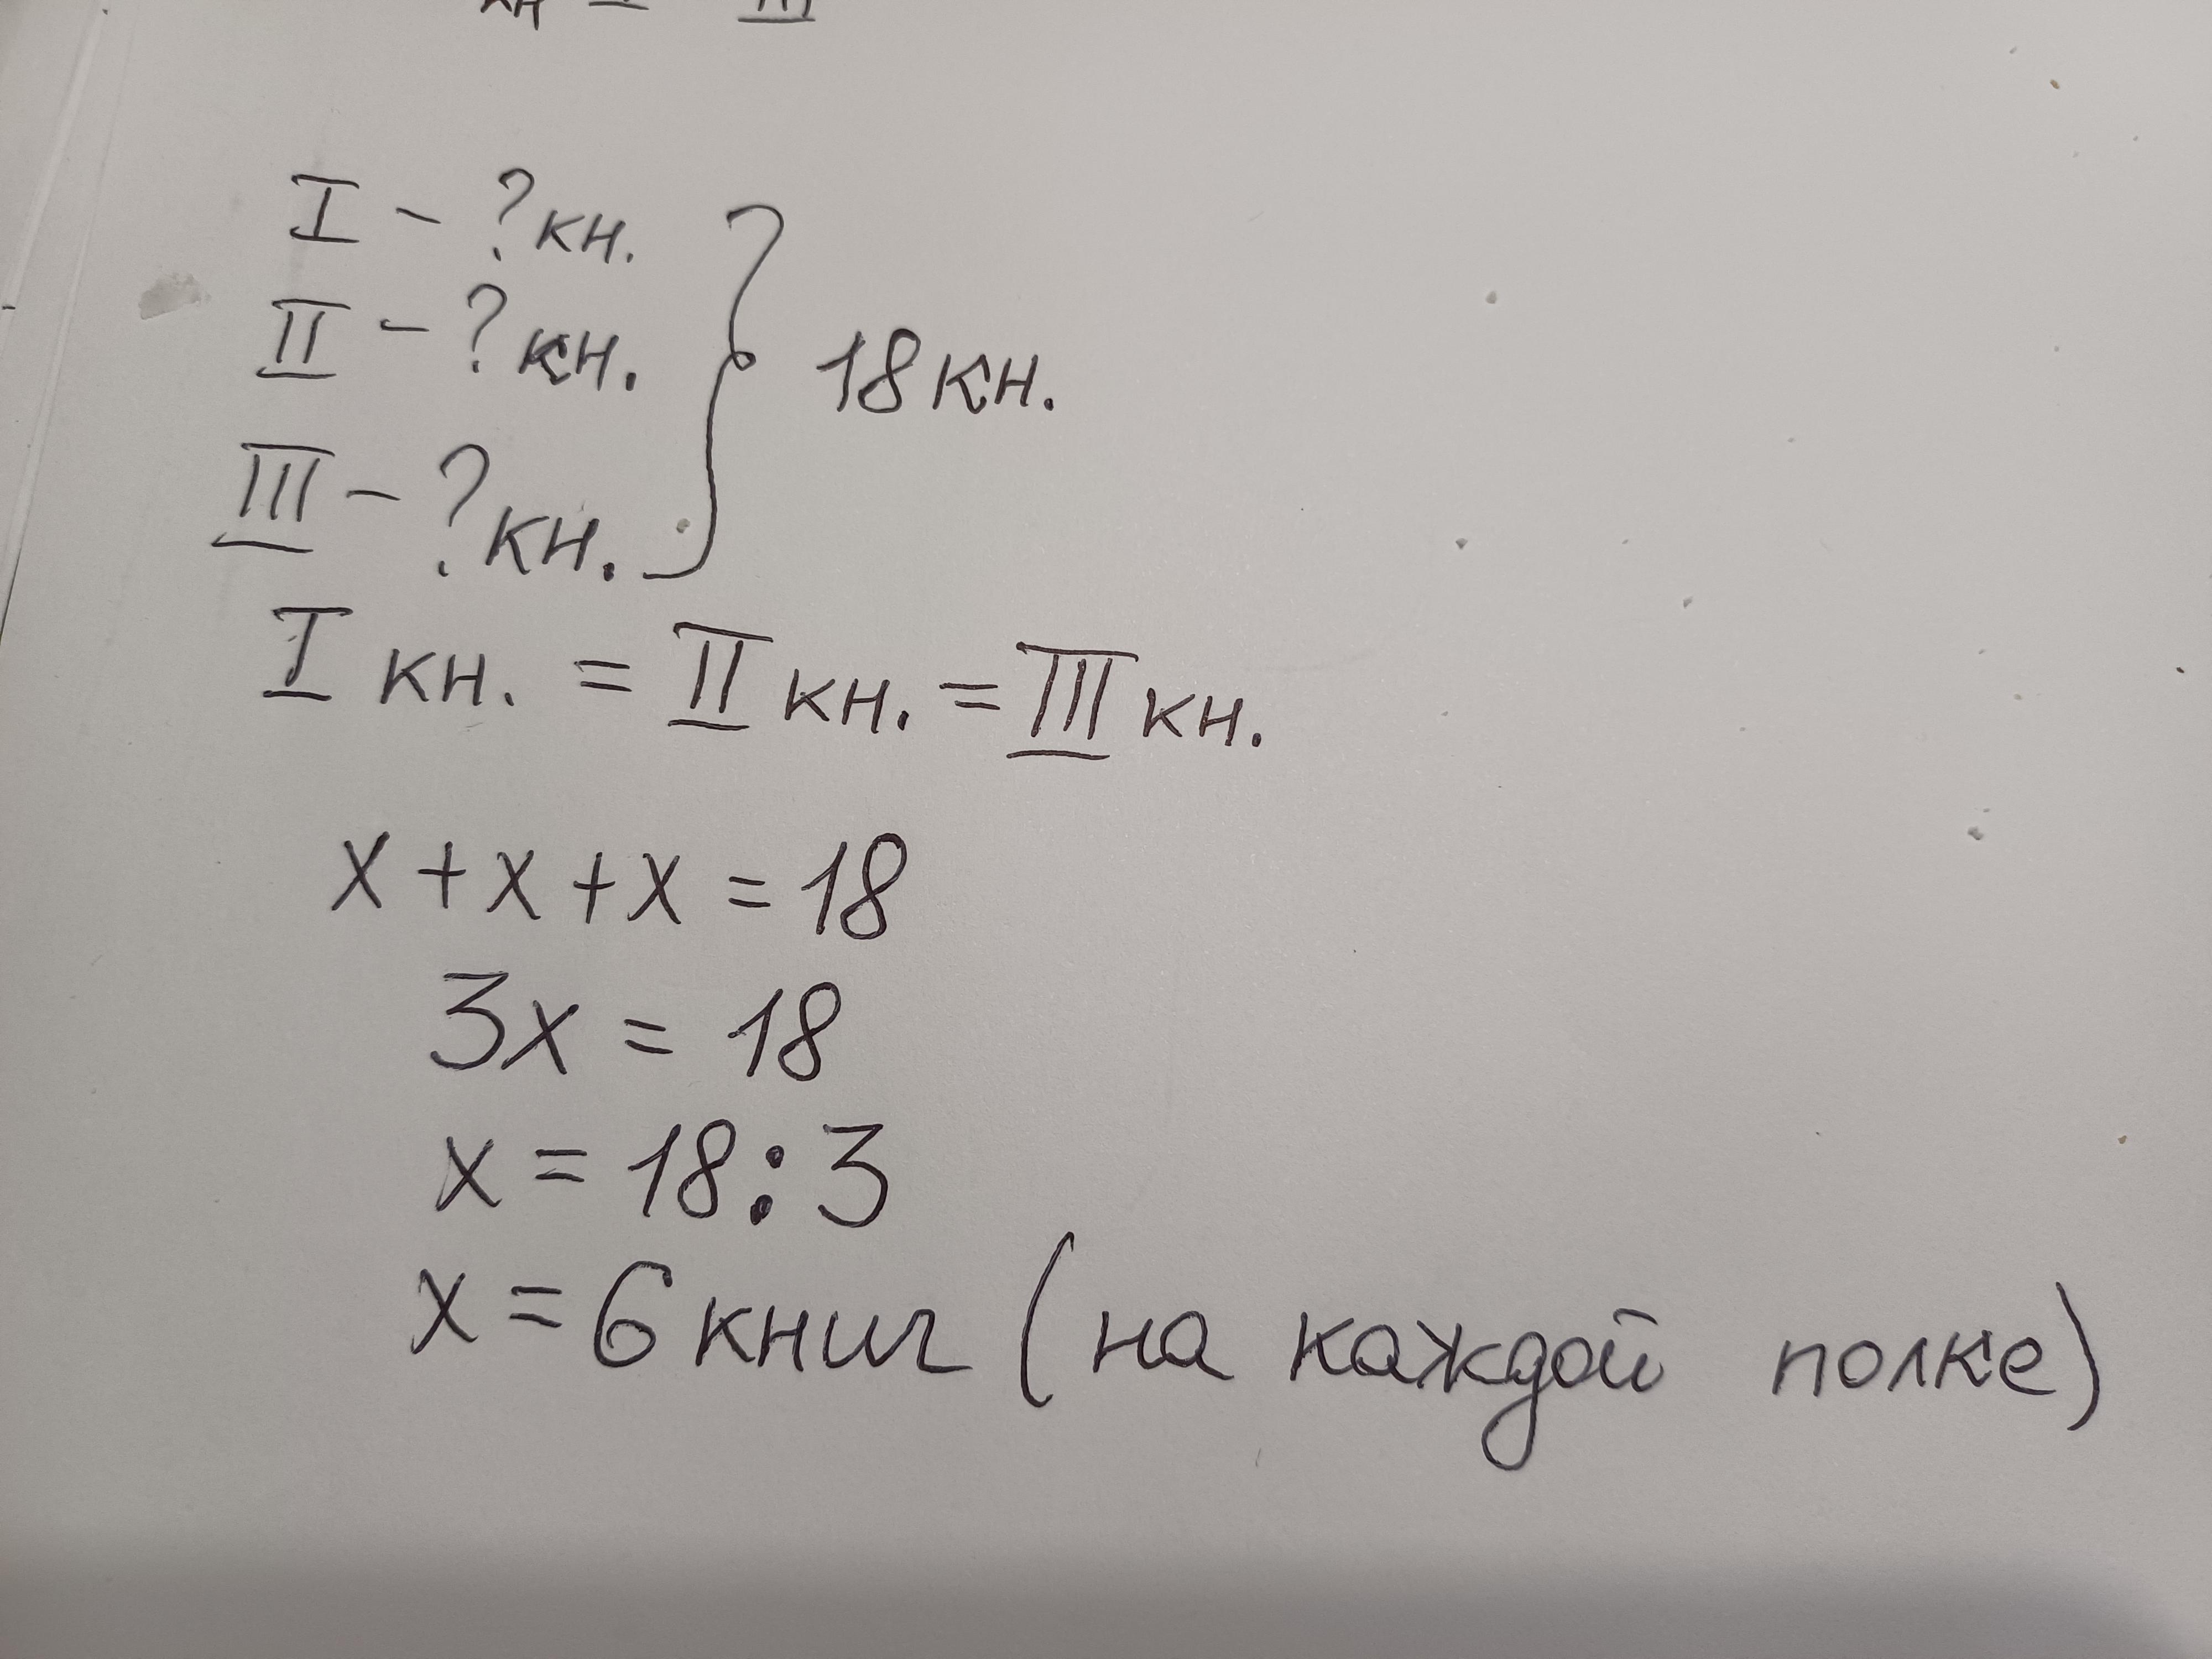 I - ? кн.
II - ? кн. } 18 кн.
III - ? кн.
I кн. = II кн. = III кн.
x + x + x = 18
3x = 18
x = 18 : 3
x = 6 книг (на каждой полке)